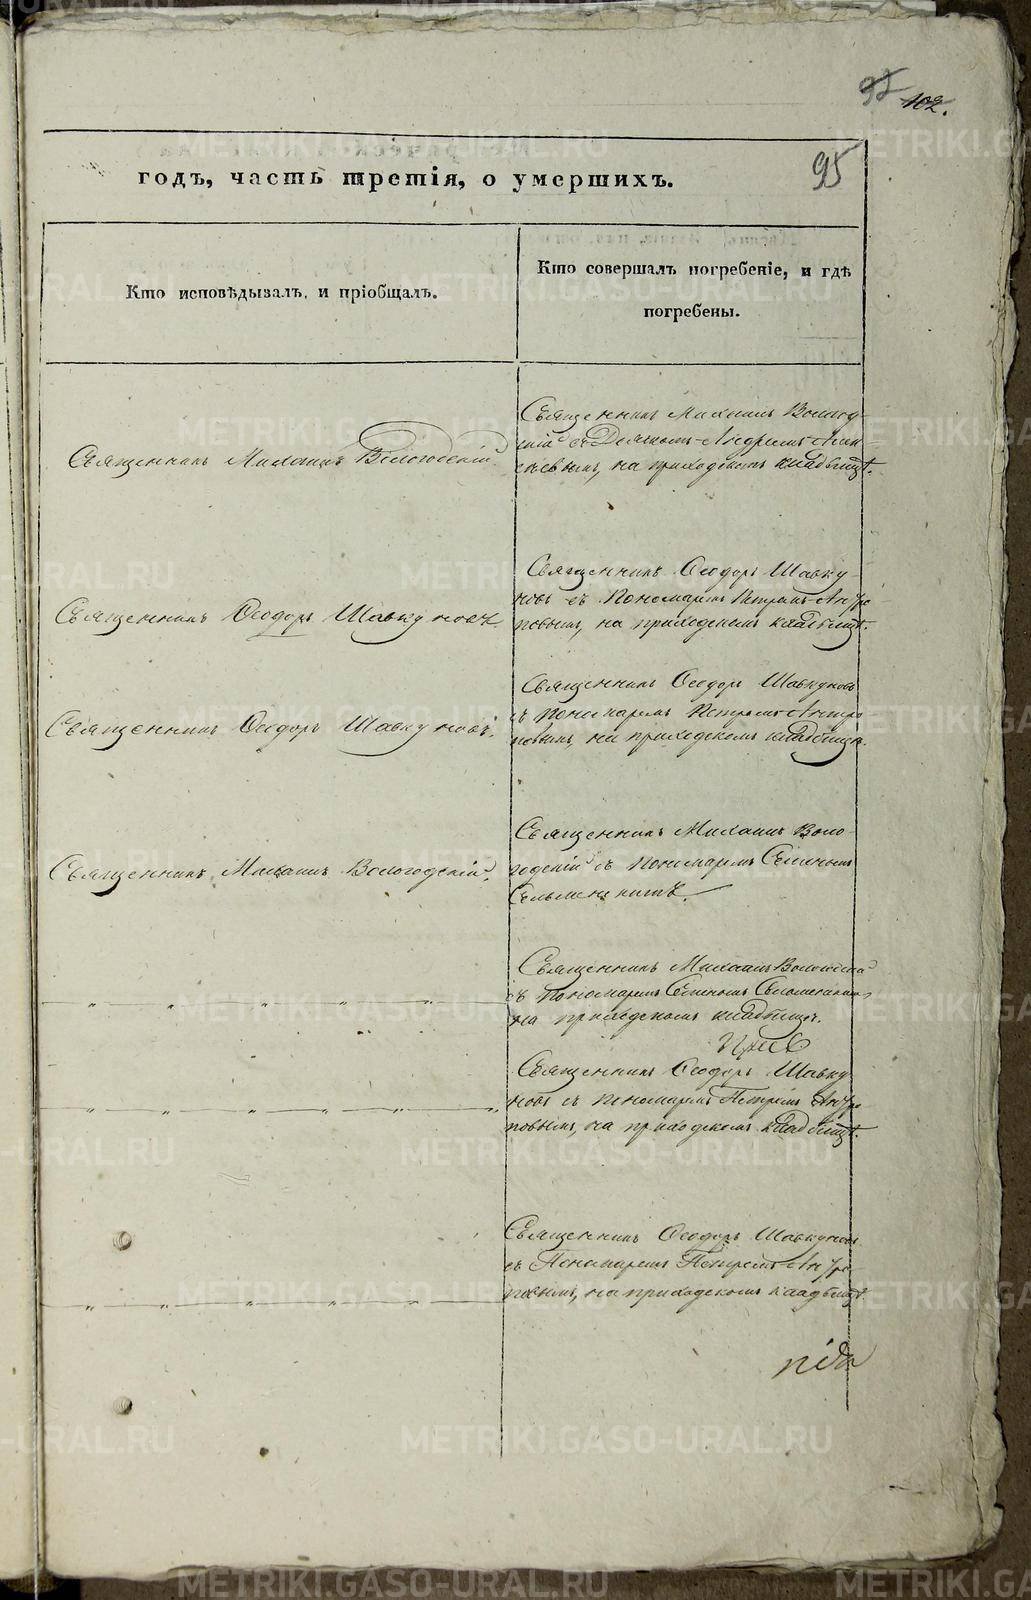 102.
95
годъ, часть третія, о умершихъ.
Кто исповѣдывалъ, и пріобщалъ.
Кто совершалъ погребеніе, и гдѣ
погребены.
Священникъ Михаилъ Вологодскій.
Священникъ Михаилъ Вологод-
скій съ Дьячкомъ Андреемъ Алек-
сѣевымъ, на приходскомъ кладбищѣ.
Священникъ Ѳеодоръ Шавкуновъ.
Священникъ Ѳеодоръ Шавку-
новъ съ Пономаремъ Петромъ Антро
повымъ, на приходскомъ кладбищѣ.
Священникъ Ѳеодоръ Шавкуновъ.
Священникъ Ѳеодоръ Шавкуновъ
съ Пономаремъ Петромъ Антро
повымъ, на приходскомъ кладбищѣ.
Священникъ Михаилъ Вологодскій.
Священникъ Михаилъ Воло-
годскій съ Пономаремъ Семеномъ
Священникъ Михаилъ Вологодскій
съ Пономаремъ Семеномъ
на приходскомъ кладбищѣ.
Священникъ Ѳеодоръ Шавку
новъ съ Пономаремъ Петромъ Антро
повымъ, на приходскомъ кладбищѣ.
Священникъ Ѳеодоръ Шавкуновъ
съ Пономаремъ Петромъ Антро
повымъ, на приходскомъ кладбищѣ.
METRIKI.GASO-URAL.RU